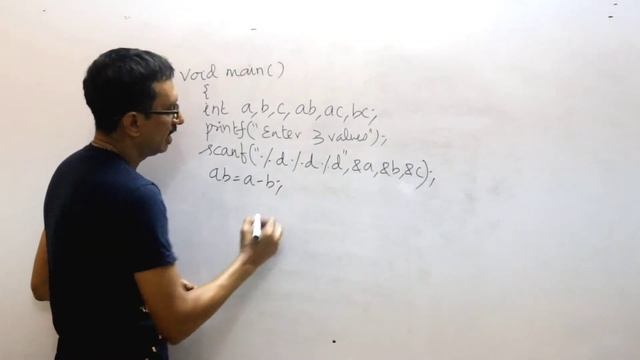 void main()
{
int a,b,c, ab, ac, bc;
printf("Enter 3 values");
scanf("%d%d%d",&a,&b,&c);
ab=a-b;